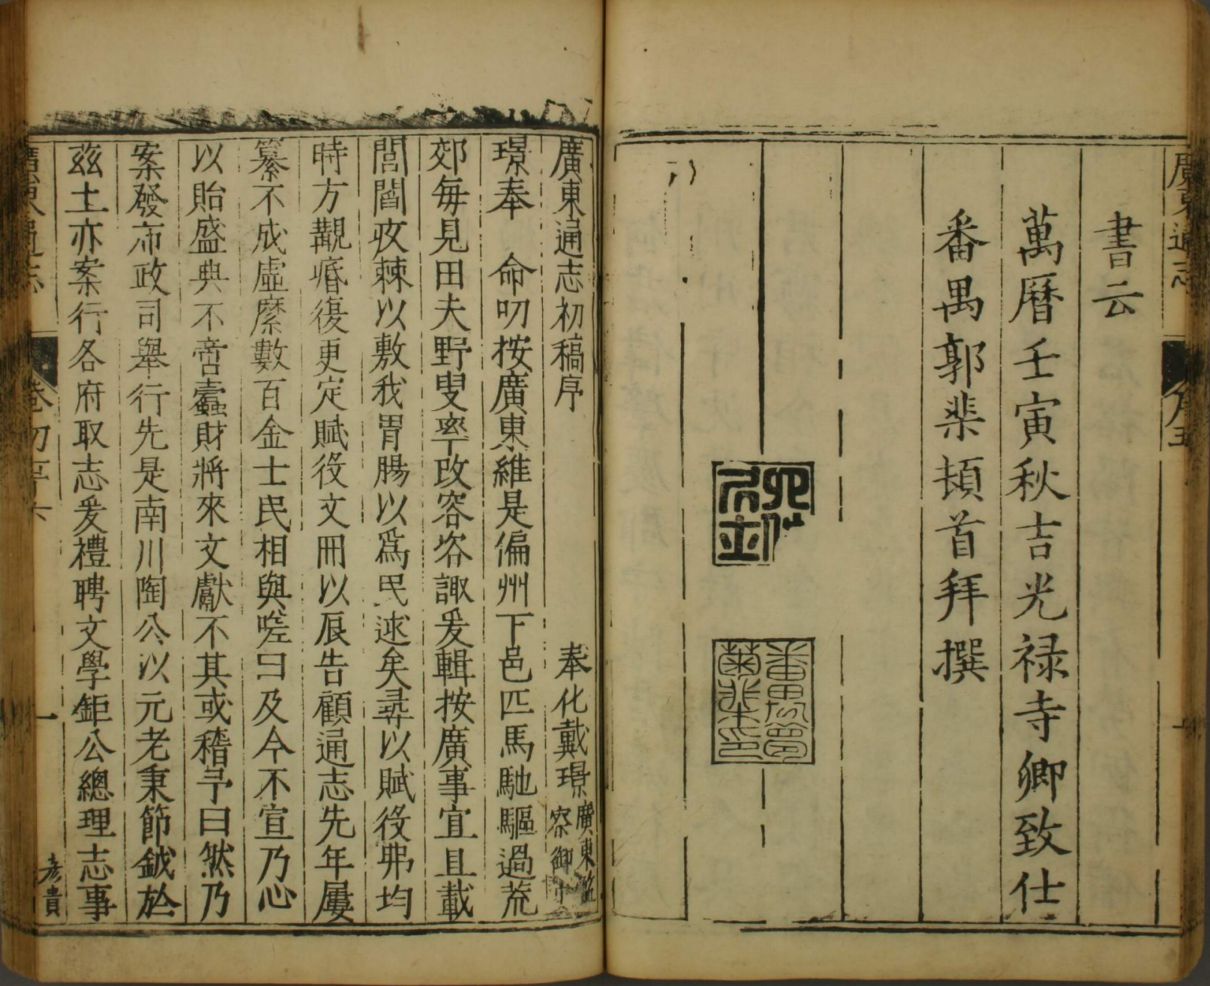 廣東通志
序五
書云
萬曆壬寅秋吉光禄寺卿致仕
番禺郭棐頓首拜撰
廣東通志初稿序
奉化戴璟廣東監察御史
璟奉　命叨按廣東維是偏州下邑匹馬馳驅過荒
郊每見田夫野叟率改容咨諏爰輯按廣事宜且載
閭閻疚棘以敷我胃腸以爲民逑矣尋以賦役弗均
時方覯瘠復更定賦役文冊以辰告顧通志先年屢
纂不成虛縻數百金士民相與嗟曰及今不宣乃心
以貽盛典不啻蠹財將來文獻不其或稽予曰然乃
案發布政司舉行先是南川陶公以元老秉節鉞於
茲土亦案行各府取志爰禮聘文學鉅公總理志事
廣東通志
卷初序六
一
彥貴